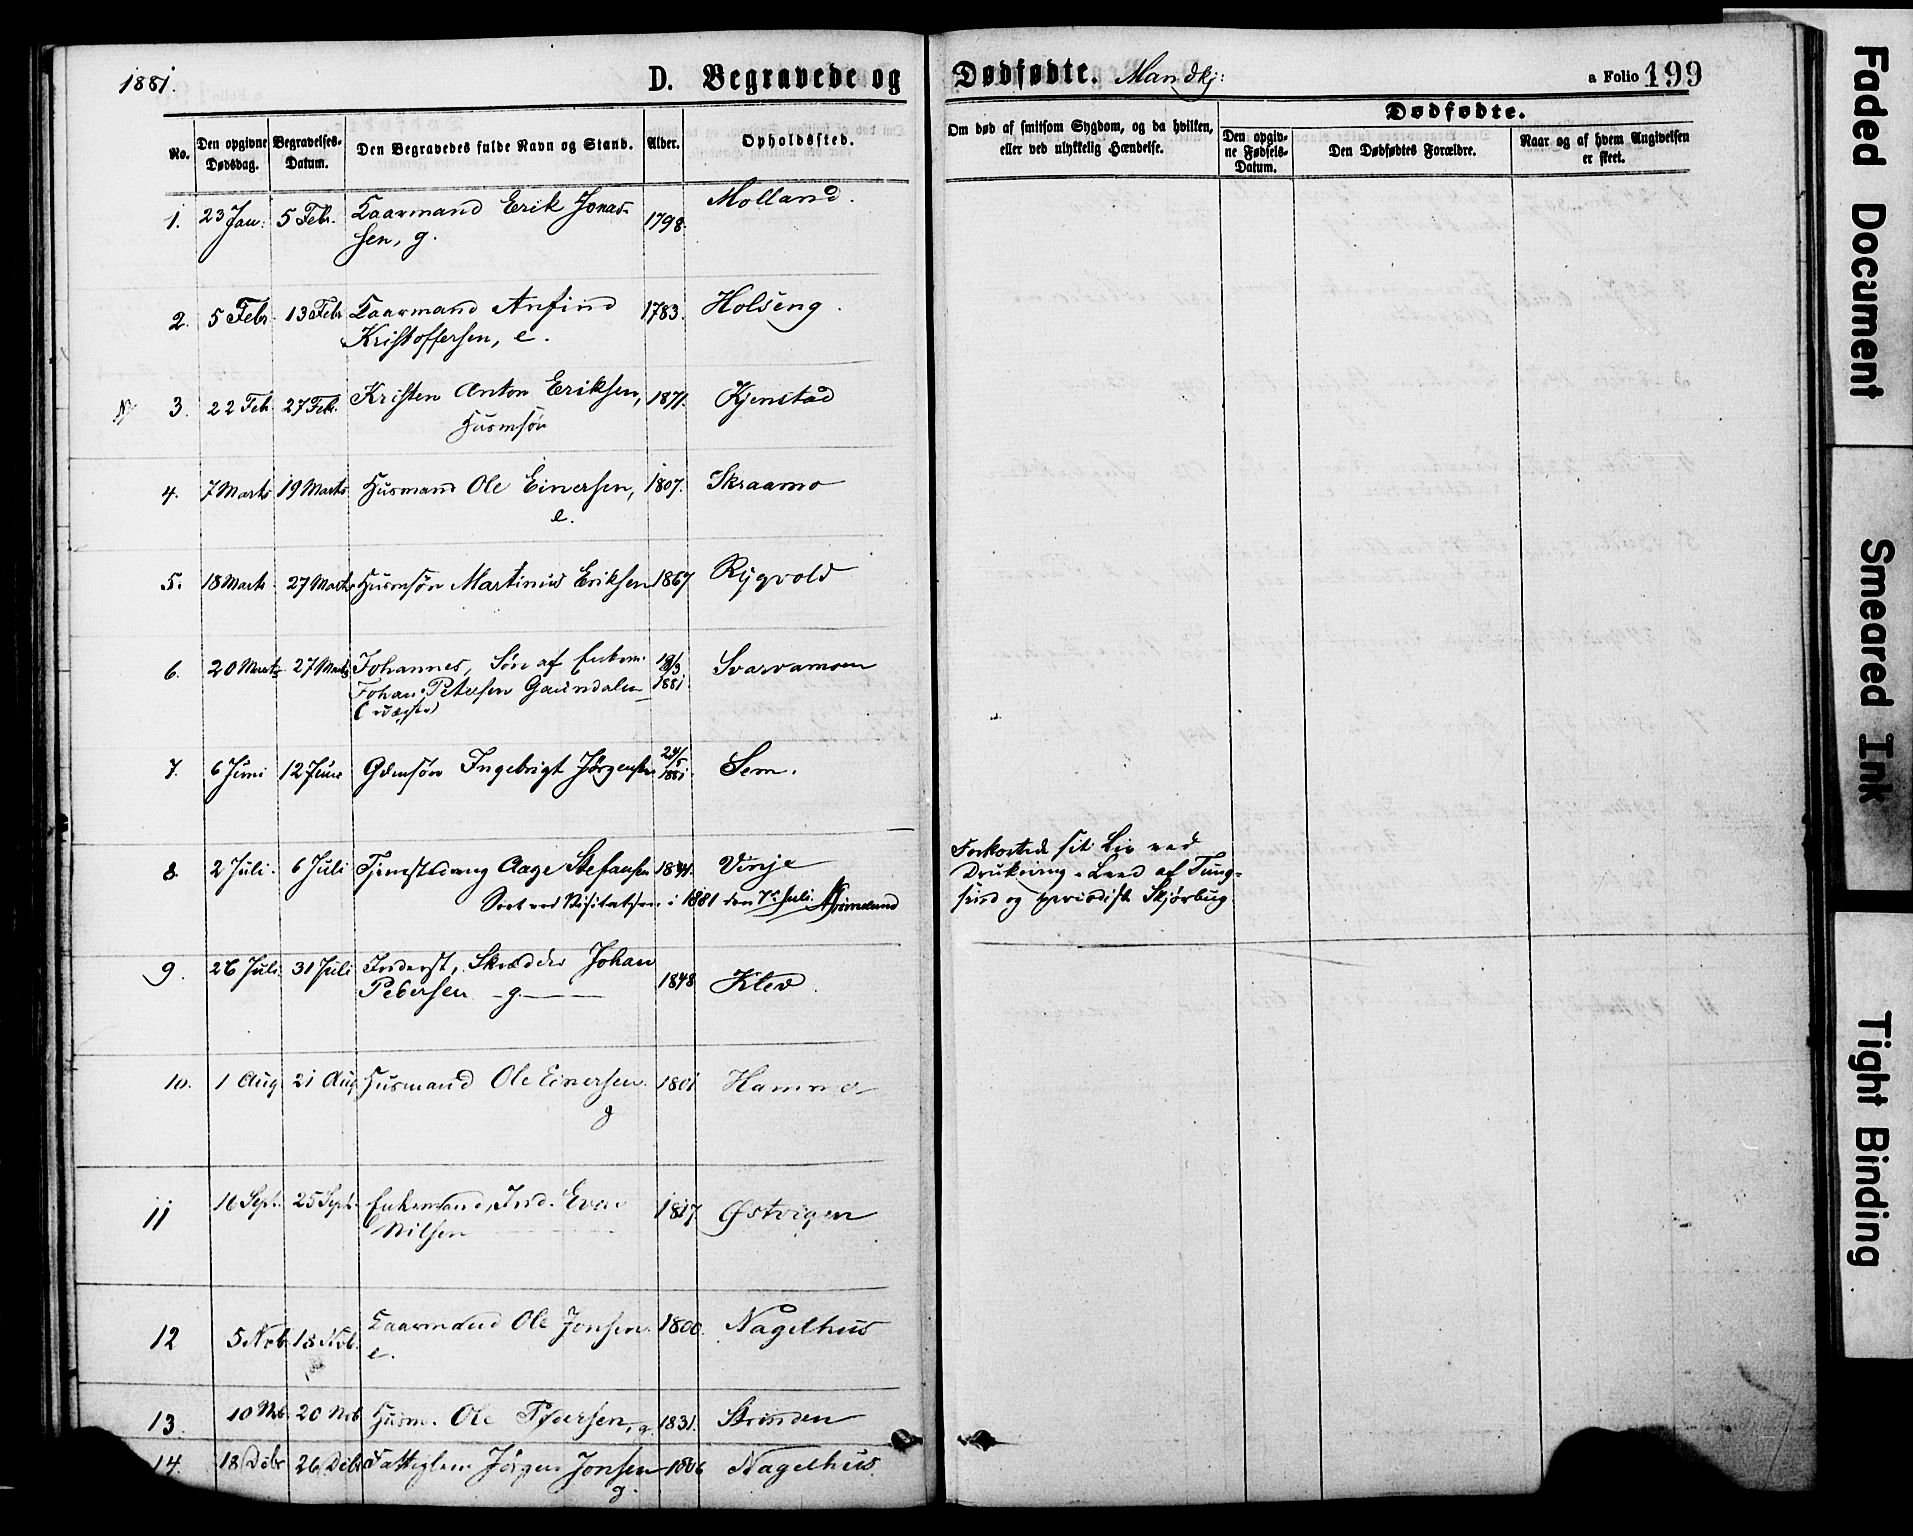 1881.
D. Begravede og Dødfødte. Mandkj:
a Folio 199
No.
Den opgivne Dødsdag.
Begravelses-Datum.
Den Begravedes fulde Navn og Stand.
Alder.
Opholdssted.
Om død af smitsom Sygdom, og da hvilken, eller ved ulykkelig Hændelse.
Dødfødte.
Den opgivne Fødsels-Datum.
Den Dødfødtes Forældre.
Naar og af hvem Angivelsen er skeet.
1. 23 Jan: 5 Febr. Kaarmand Erik Jonas- 1798. Molland.
sen, g.
2. 5 Febr. 13 Febr Kaarmand Anfind 1783. Holseng.
Kristoffersen, e.
3. 22 Feb. 27 Feb. Kristen Anton Eriksen, 1871. Kjenstad
Husmsøn
4. 7 Marts 19 Marts Husmand Ole Einersen, 1807. Skraamo
e.
5. 18 Marts 27 Marts Husmsøn Martinius Eriksen 1867 Rygvold
6. 20 Marts 27 Marts Johannes, Søn af Enkem. 18/3 1881. Svarvamoen
Johan Petersen Gaundalen
7. 6 Juni 12 Juni Gdmsøn Ingebrigt Jørgensen 24/5 1881. Sem.
8. 2 Juli. 6 Juli Tjenestedreng Aage Stefansen 1841. Vinje
Forkortede sit Liv ved
Drukning. Leed af Tung-
sind og periodisk
Seet ved Visitatsen i 1881 den 7de Juli.
9. 26 Juli 31 Juli Inderst, Skrædder Johan 1848 Klev.
Petersen g.
10. 1 Aug 21 Aug Husmand Ole Einersen. 1801 Hammer
g
11 16 Sept. 25 Sept. Enkemand, Ind. Even 1817. Østvigen
Nilsen
12 5 Nob. 18 Nob. Kaarmand Ole Jonsen. 1800. Nagelhus
e.
13. 10 Nob. 20 Nob Husm. Ole Pedersen, g. 1831. Strinden
14. 18 Debr 26 Debr Fattiglem Jørgen Jonsen 1806 Nagelhus.
g.
Faded Document
Smeared Ink
Tight Binding